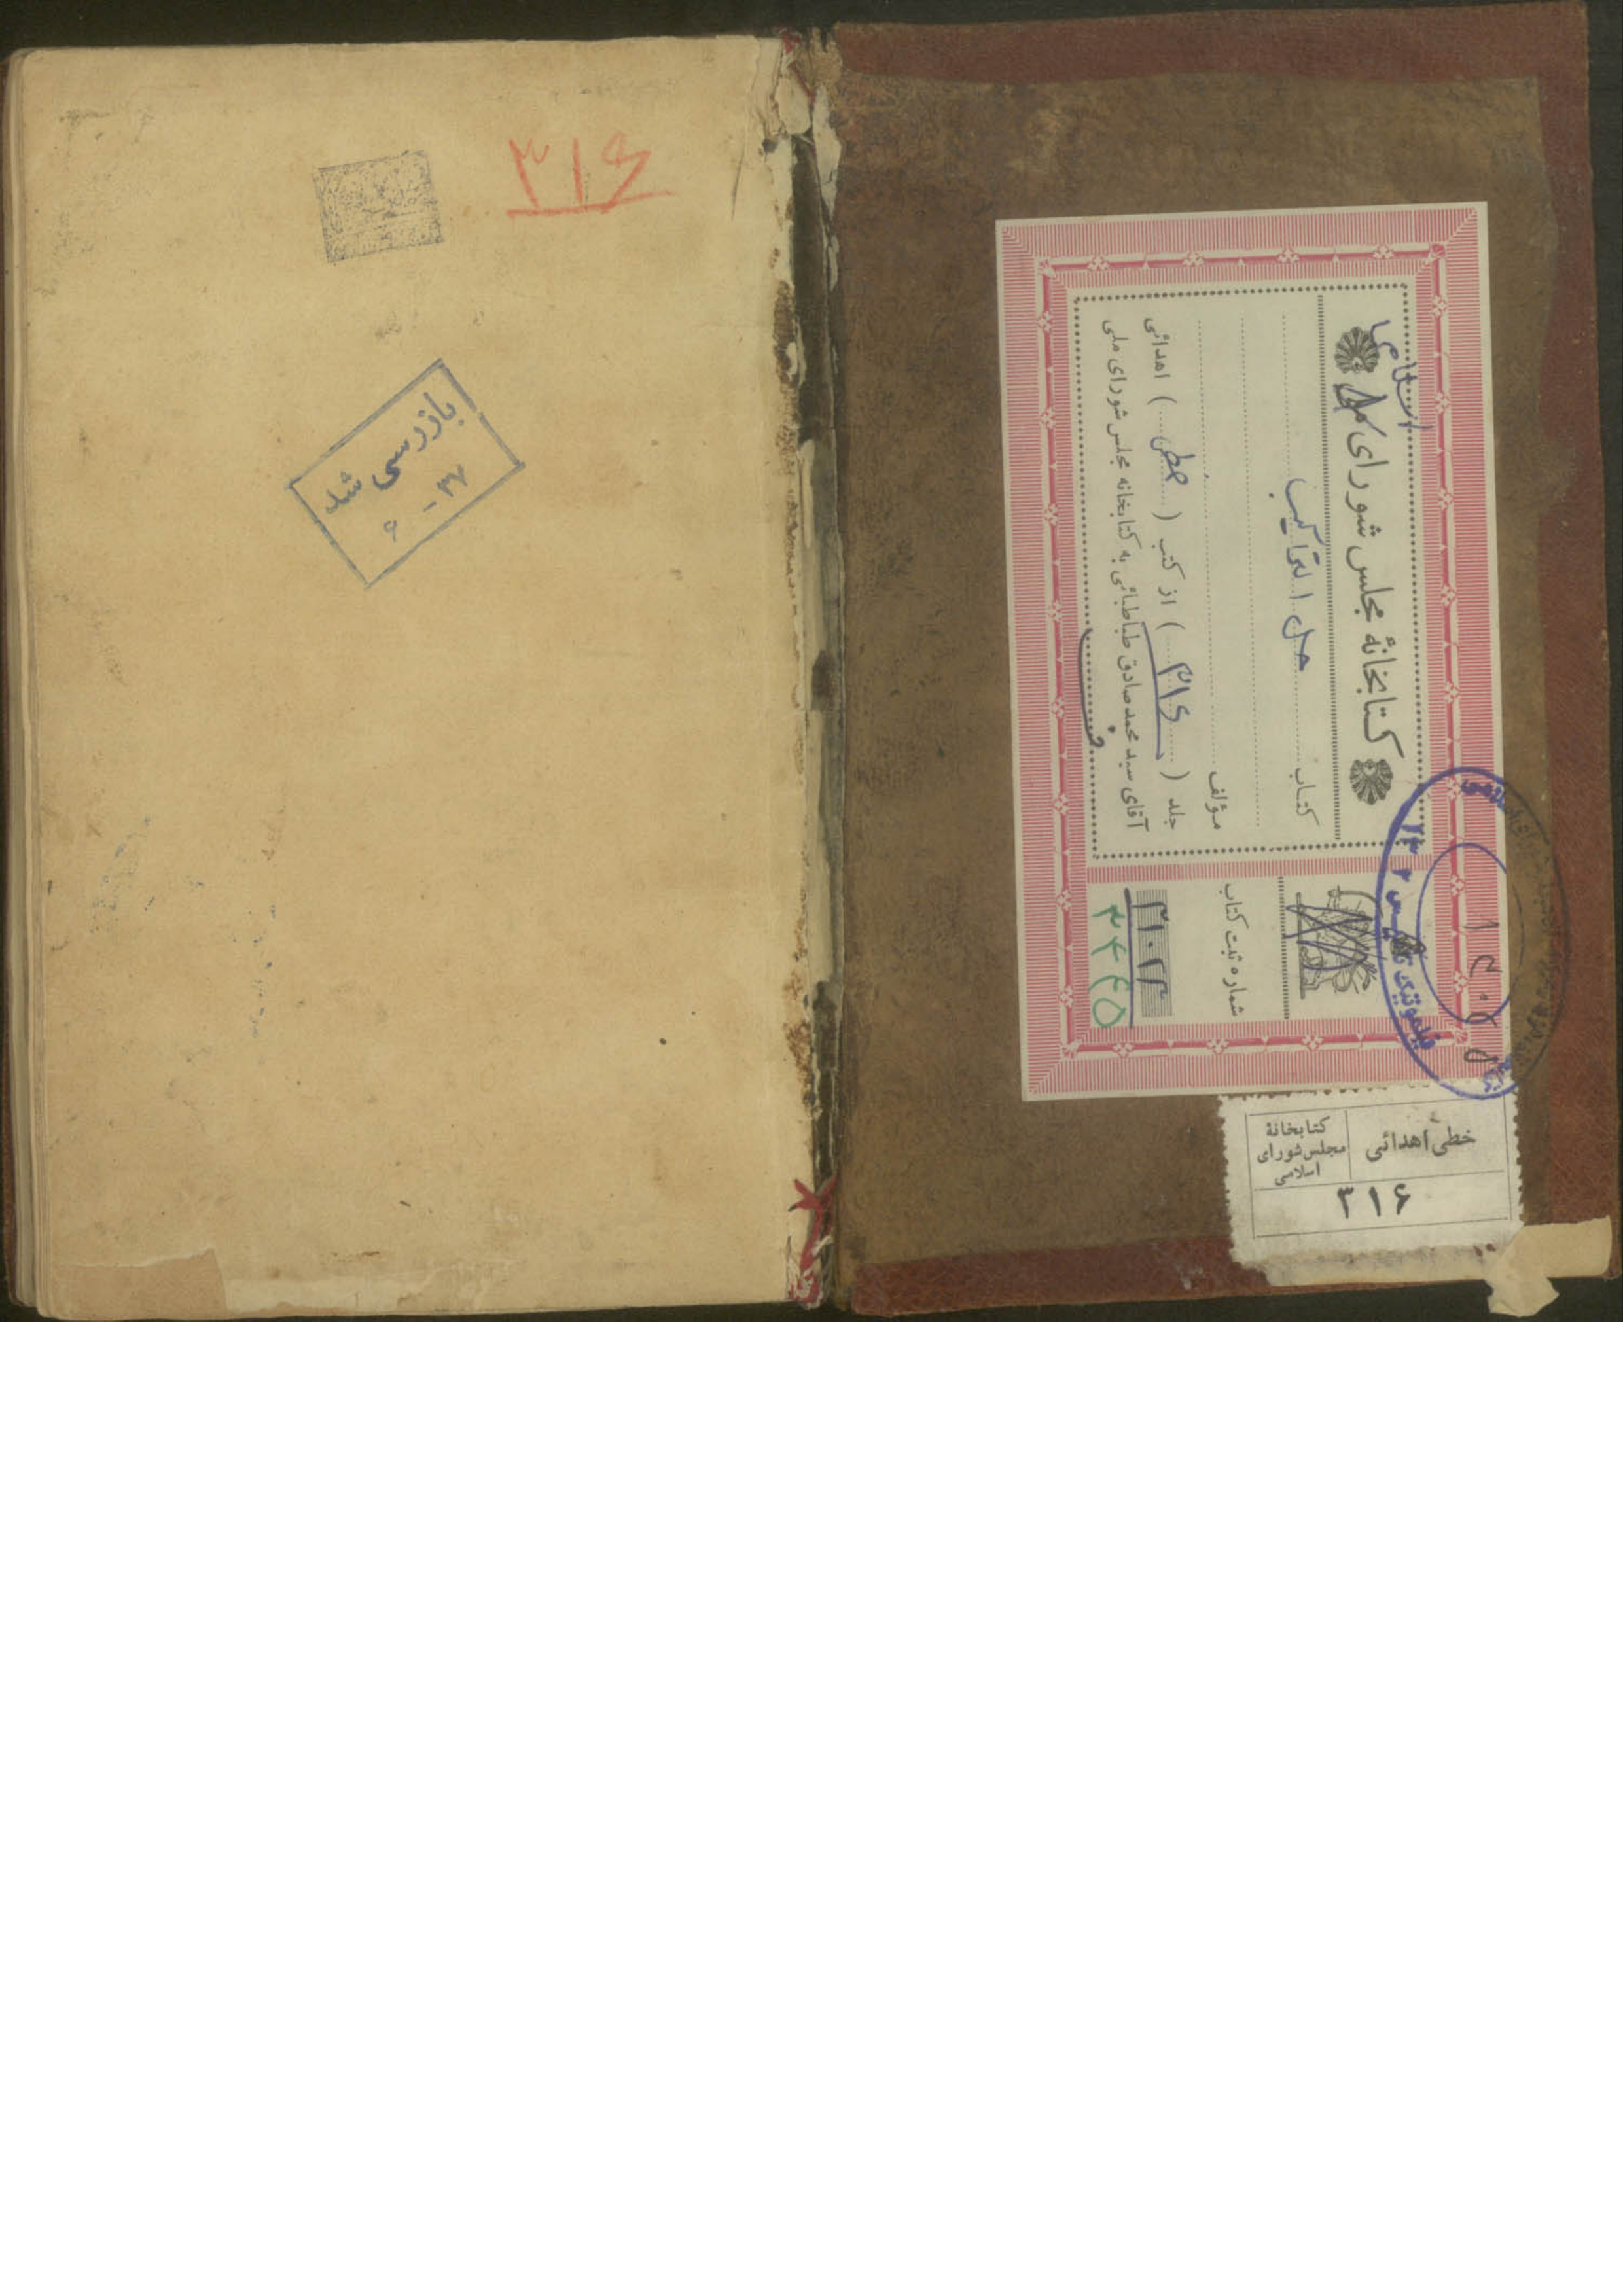 ۳۱۶
بازرسی شد
۳۷ - ۶
اسلامی
کتابخانهٔ مجلس شورای ملی
کتاب حل التراکیب
مؤلف
جلد ( ۳۱۶ ) از کتب ( خطی ) اهدائی
آقای سید محمد صادق طباطبائی به کتابخانه مجلس شورای ملی
شماره ثبت کتاب
۳۱۰۲۲
۲۴۴۶۵
خطی اهدائی
کتابخانهٔ
مجلس شورای
اسلامی
۳۱۶